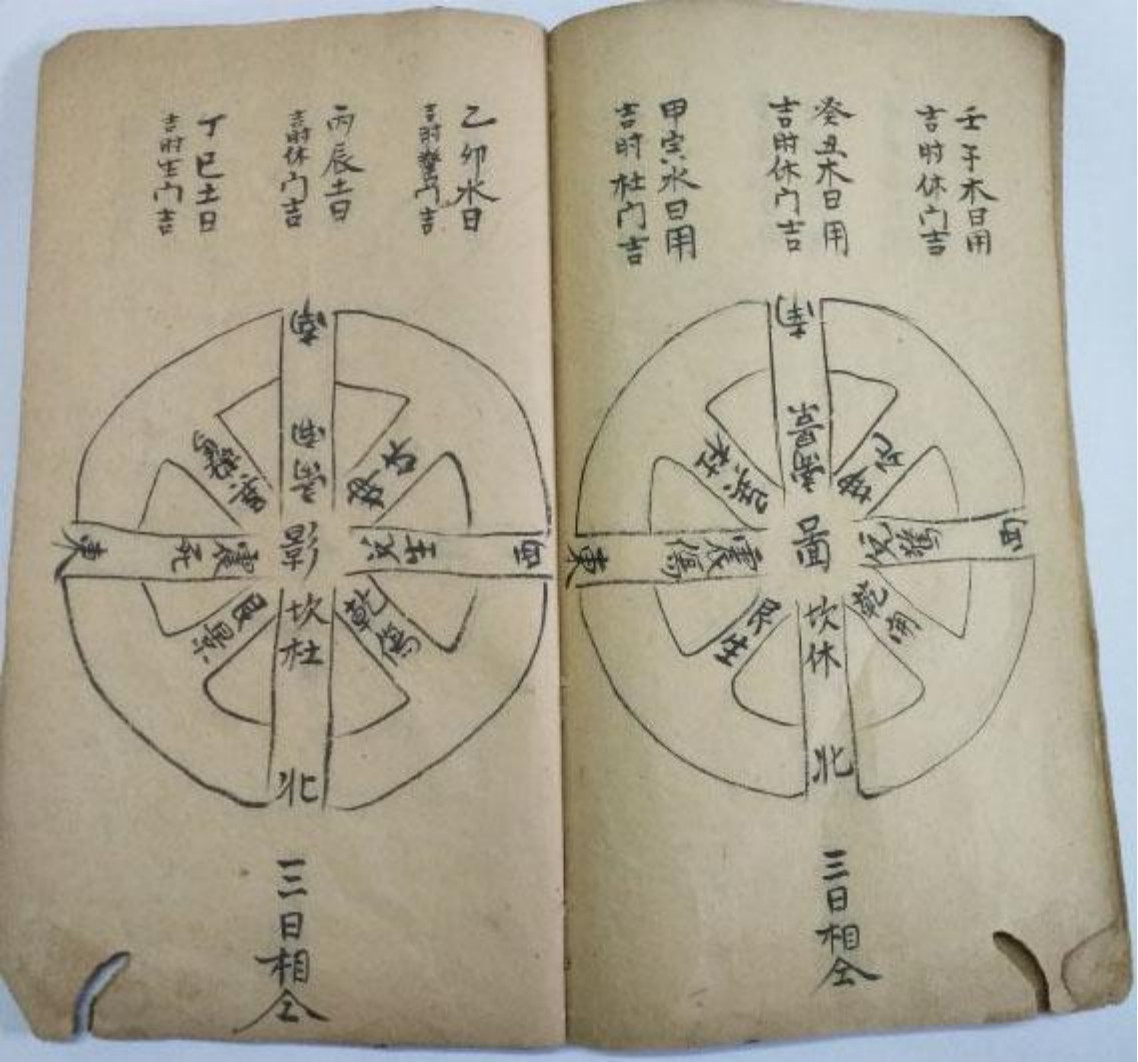 壬子木日用
吉时休门吉
癸丑木日用
吉时休门吉
甲寅水日用
吉时杜门吉
南
巽杜
坤死
東
震傷
圖
西
艮生
坎休
北
三日相仝
乙卯水日
吉时驚门吉
丙辰土日
吉时休门吉
丁巳土日
吉时生门吉
南
東
震死
影
兑生
西
艮景
坎杜
北
三日相仝